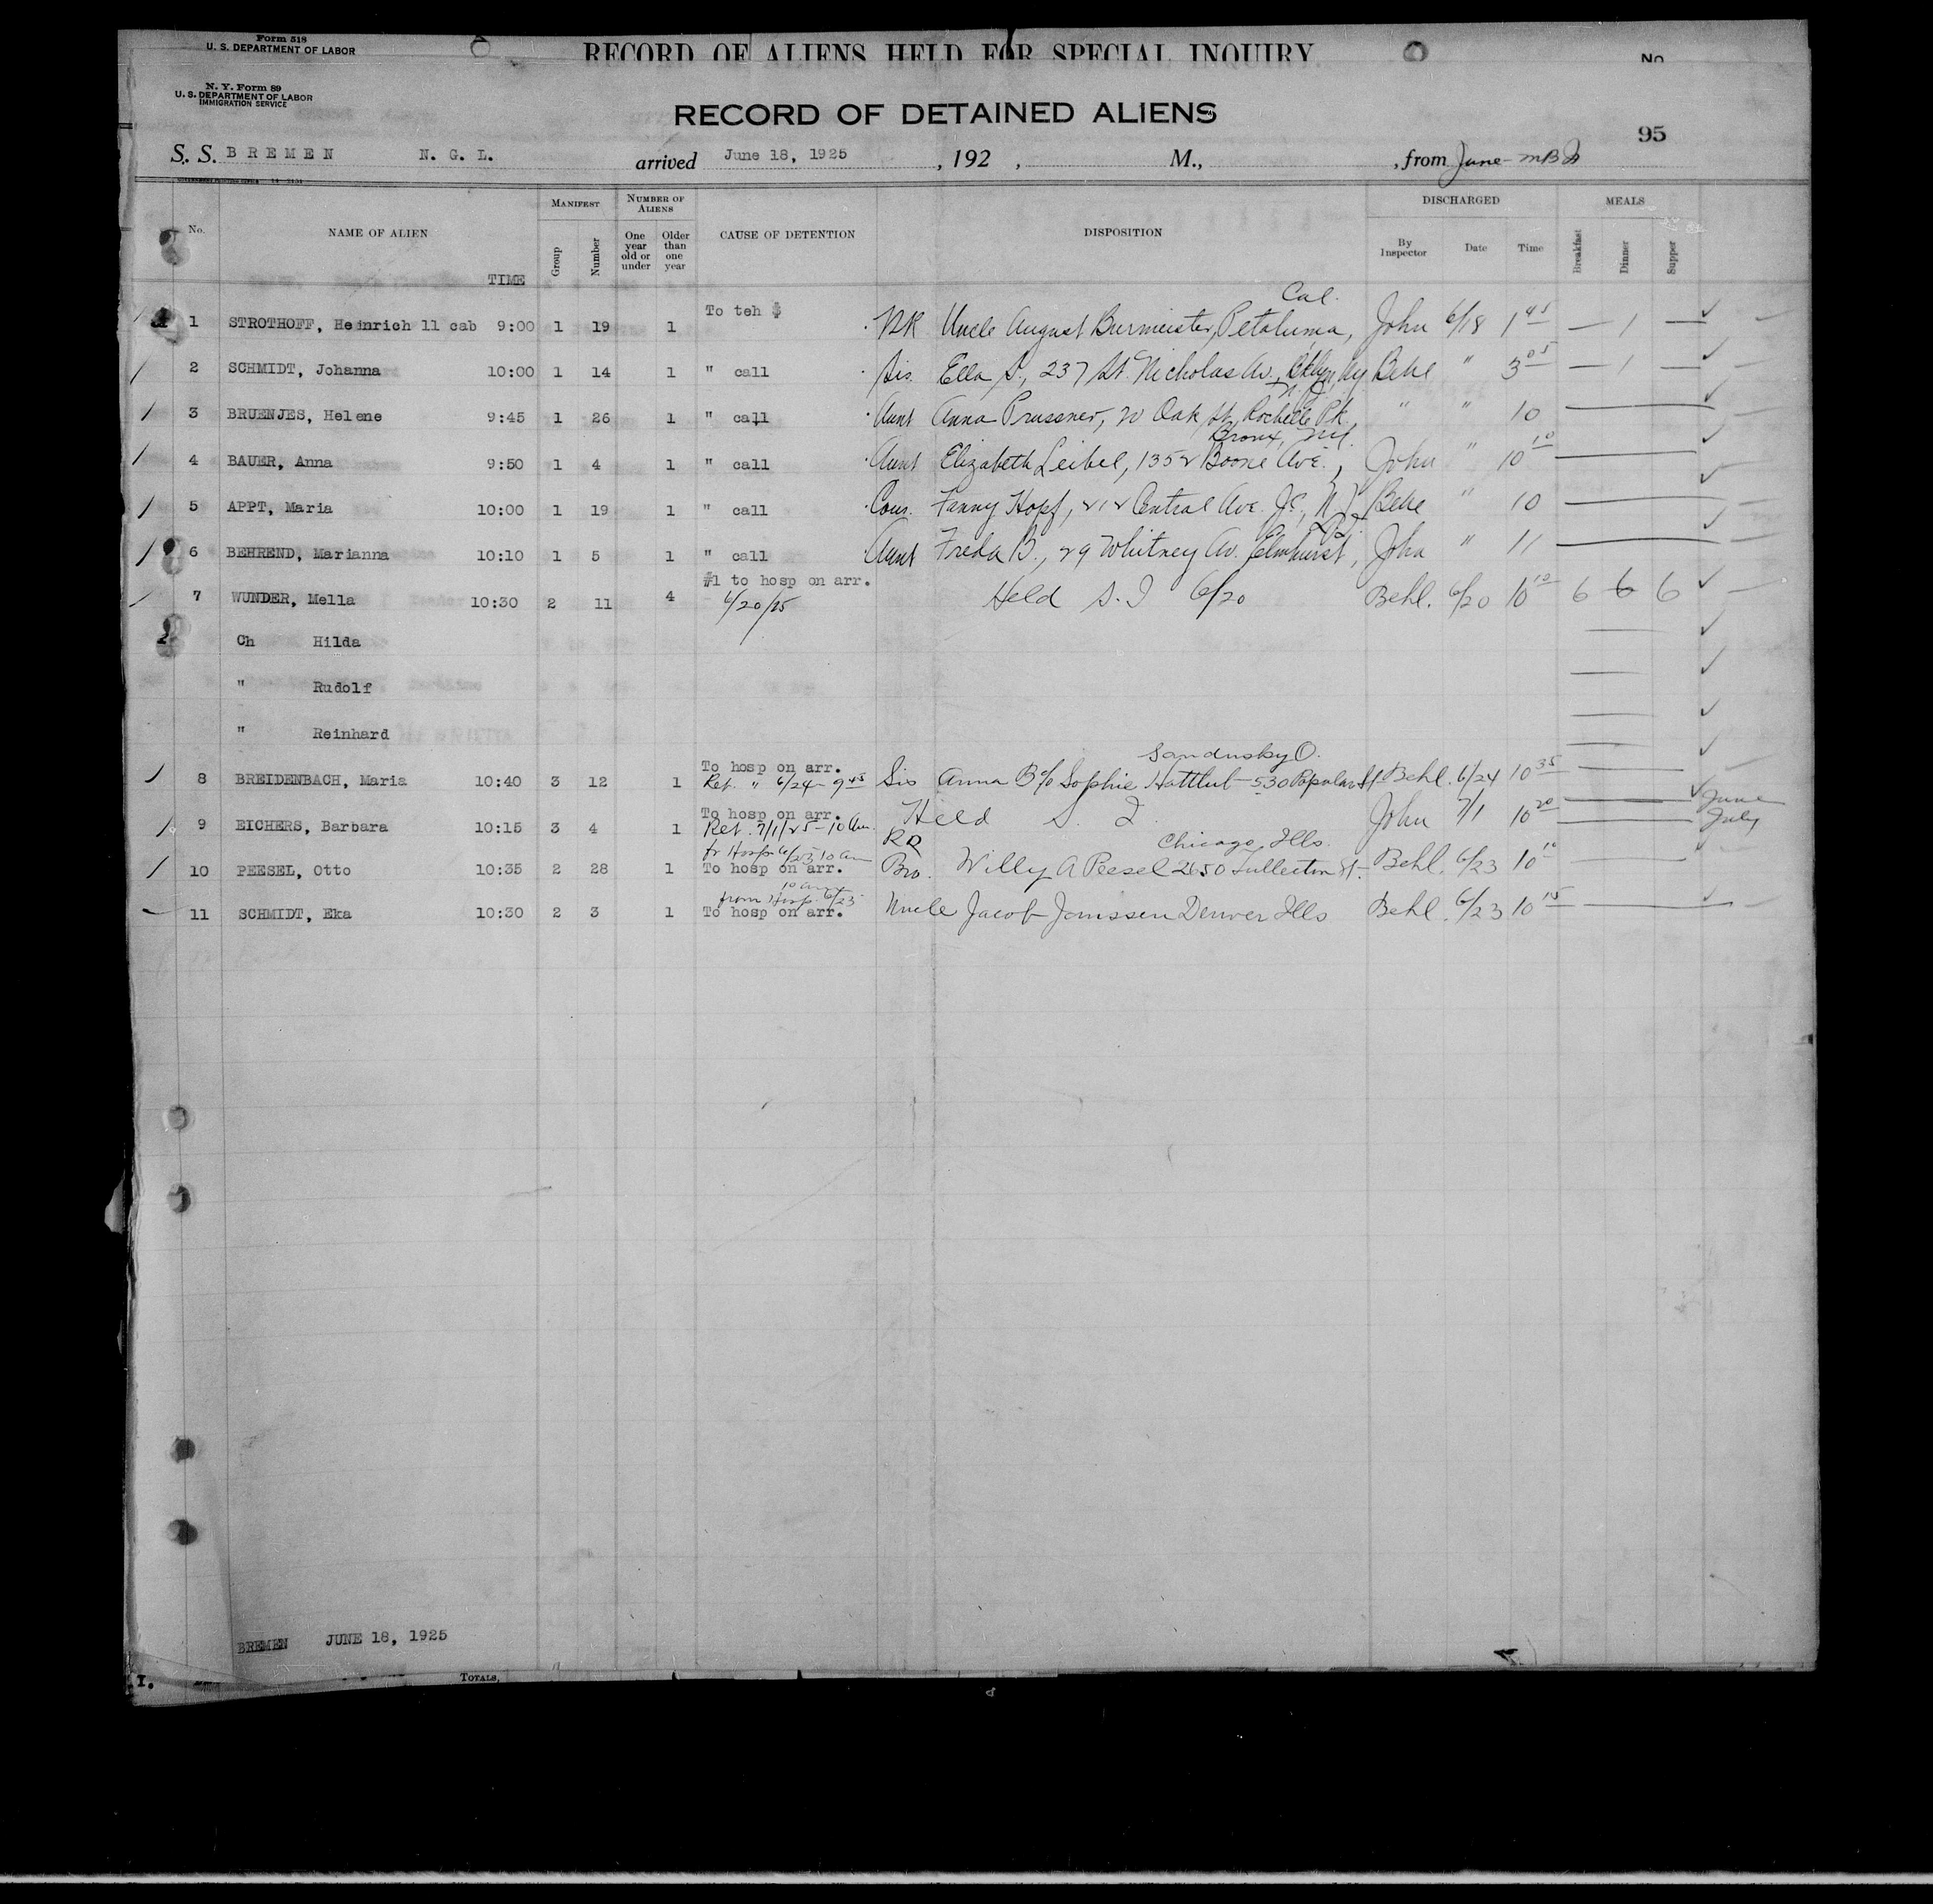 Form 518
U. S. DEPARTMENT OF LABOR
RECORD OF ALIENS HELD FOR SPECIAL INQUIRY
No.
N. Y. Form 89
U. S. DEPARTMENT OF LABOR
IMMIGRATION SERVICE
RECORD OF DETAINED ALIENS
95
S. S. BREMEN N. G. L. arrived June 18, 1925, 192 , M., , from June
MANIFEST NUMBER OF ALIENS DISCHARGED MEALS
No. NAME OF ALIEN TIME Group Number One year old or under Older than one year CAUSE OF DETENTION DISPOSITION By Inspector Date Time Breakfast Dinner Supper
Cal.
1 STROTHOFF, Heinrich 11 cab 9:00 1 19 1 To teh $ RR Uncle August Burmeister, Petaluma, John 6/18 1 45 — 1 —
2 SCHMIDT, Johanna 10:00 1 14 1 " call Sis. Ella S., 237 St. Nicholas Av., Bklyn, Ny Behl " 3 05 — 1 —
N. J.
3 BRUENJES, Helene 9:45 1 26 1 " call Aunt Anna Prussner, 20 Oak St, Rochelle Pk. " " 10
Bronx, NY.
4 BAUER, Anna 9:50 1 4 1 " call Aunt Elizabeth Leibel, 1352 Boone Ave., John " 10 10
5 APPT, Maria 10:00 1 19 1 " call Cous. Fanny Hopf, 212 Central Ave. J.C., N.J. Behl " 10
L. I.
6 BEHREND, Marianna 10:10 1 5 1 " call Aunt Freda B., 29 Whitney Av. Elmhurst, John " 11
#1 to hosp on arr.
7 WUNDER, Mella 10:30 2 11 4 6/20/25 Held S. I 6/20 Behl. 6/20 10 10 6 6 6
Ch Hilda
" Rudolf
" Reinhard
Sandusky O.
To hosp on arr.
8 BREIDENBACH, Maria 10:40 3 12 1 Ret. " 6/24 - 9 45 Sis Anna B c/o Sophie Hattlut - 530 Popular St Behl. 6/24 10 35
To hosp on arr. June
9 EICHERS, Barbara 10:15 3 4 1 Ret. 7/1/25 - 10 Am. Held S. I. John 7/1 10 20 July
fr Hosp 6/23 10 am RR Chicago, Ills.
10 PEESEL, Otto 10:35 2 28 1 To hosp on arr. Bro. Willy A Peesel 2650 Fullerton St. Behl. 6/23 10 10
10 am
from Hosp. 6/23
11 SCHMIDT, Eka 10:30 2 3 1 To hosp on arr. Uncle Jacob Janssen Denver Ills Behl. 6/23 10 15
BREMEN JUNE 18, 1925
TOTALS,